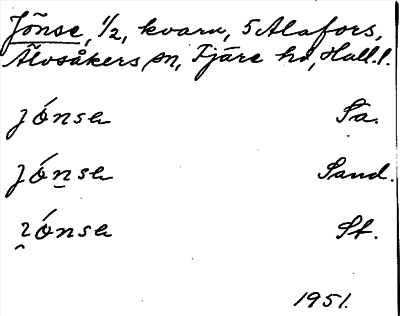 Jönse, 1/2, kvarn, 5 Alafors,
Älvsåkers sn, Fjäre hd, Hall. l.
jónsa Sa.
jón̲sa Sand.
jónsa St.
1951.